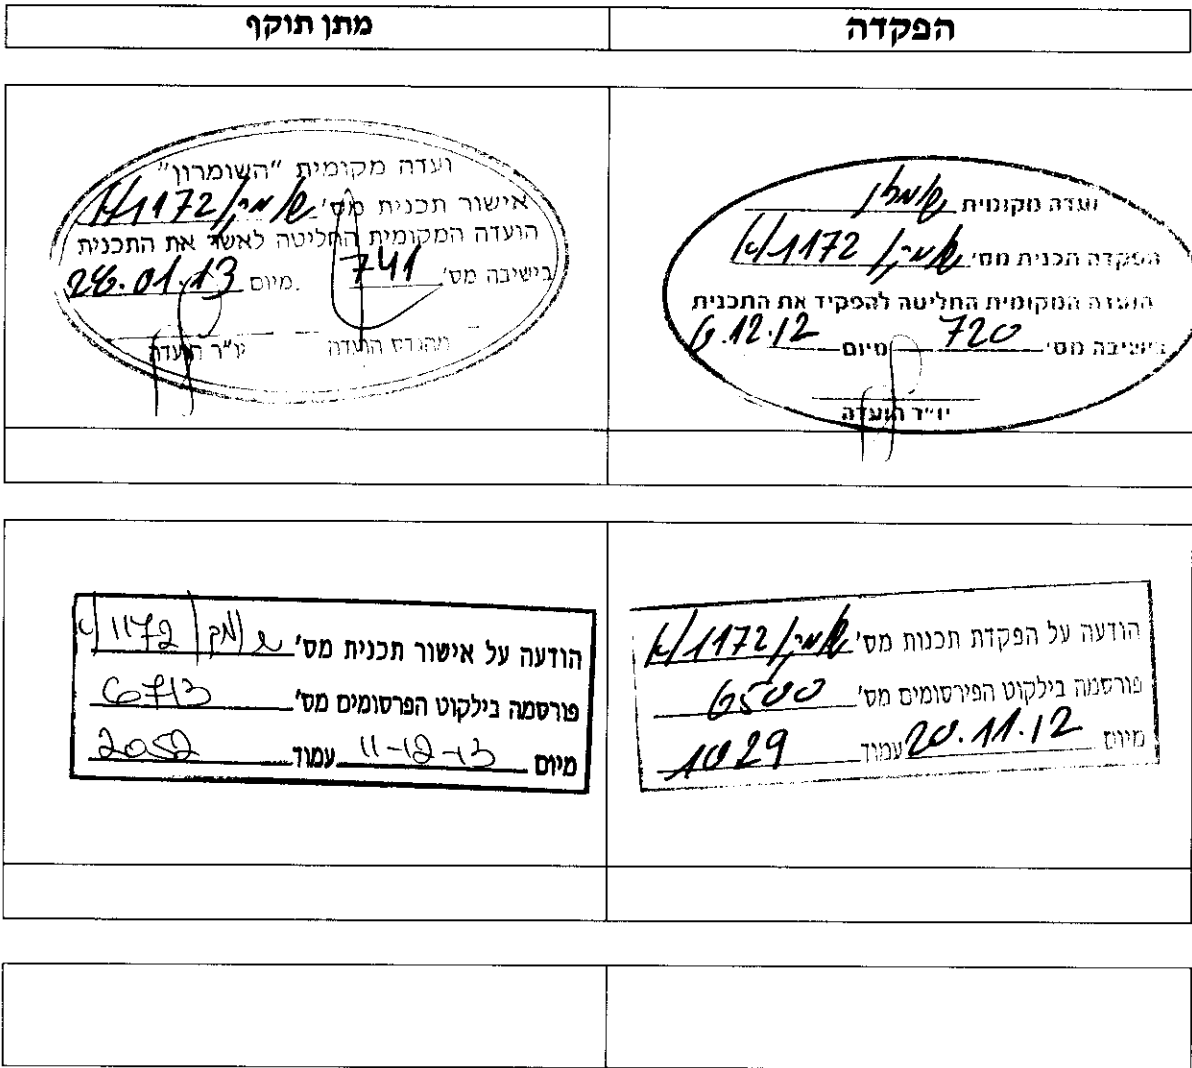 הפקדה
מתן תוקף
ועדה מקומית שומרון
הפקדה תכנית מס' ש/מק/1172/א
הועדה המקומית החליטה להפקיד את התכנית
בישיבה מס' 720 מיום 6.12.12
יו"ר הועדה
ועדה מקומית "השומרון"
אישור תכנית מס' ש/מק/1172/א
הועדה המקומית החליטה לאשר את התכנית
בישיבה מס' 741 מיום 28.01.13
מהנדס הועדה יו"ר הועדה
הודעה על הפקדת תכנות מס' ש/מק/1172/א
פורסמה בילקוט הפירסומים מס' 6500
מיום 20.11.12 עמוד 1029
הודעה על אישור תכנית מס' ש/מק/1172/א
פורסמה בילקוט הפרסומים מס' 6713
מיום 11-12-13 עמוד 2052